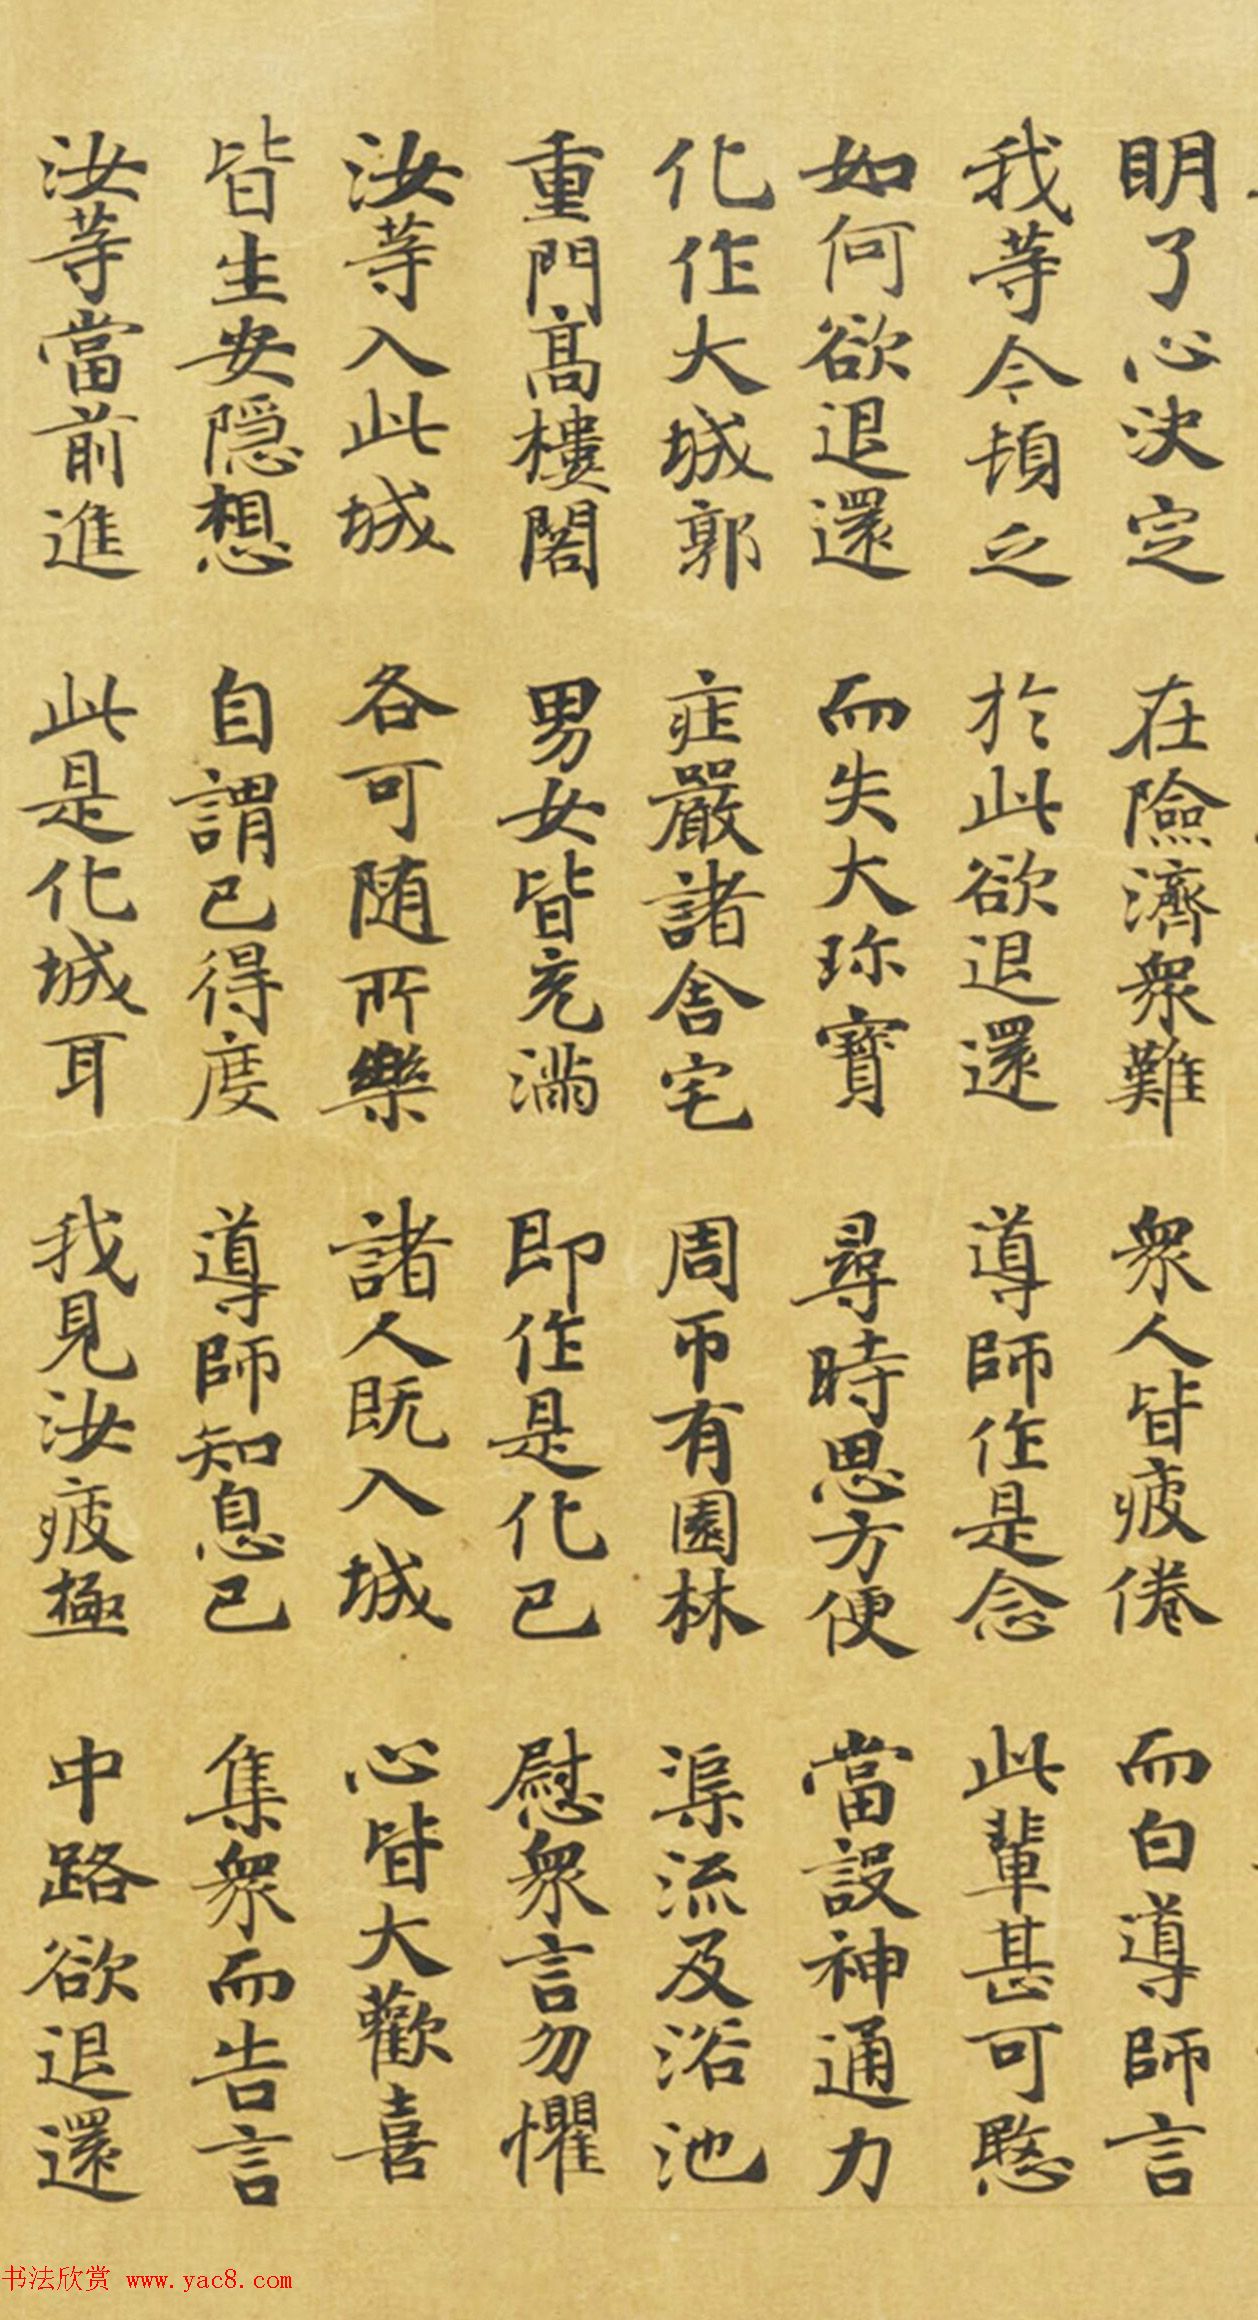 明了心決定 在險濟衆難 衆人皆疲倦 而白導師言
我等今頓乏 於此欲退還 導師作是念 此輩甚可愍
如何欲退還 而失大珎寶 尋時思方便 當設神通力
化作大城郭 庄嚴諸舍宅 周帀有園林 渠流及浴池
重門高樓閣 男女皆充滿 即作是化已 慰衆言勿懼
汝等入此城 各可随所樂 諸人既入城 心皆大歡喜
皆生安隠想 自謂已得度 導師知息已 集衆而告言
汝等當前進 此是化城耳 我見汝疲極 中路欲退還
书法欣赏 www.yac8.com